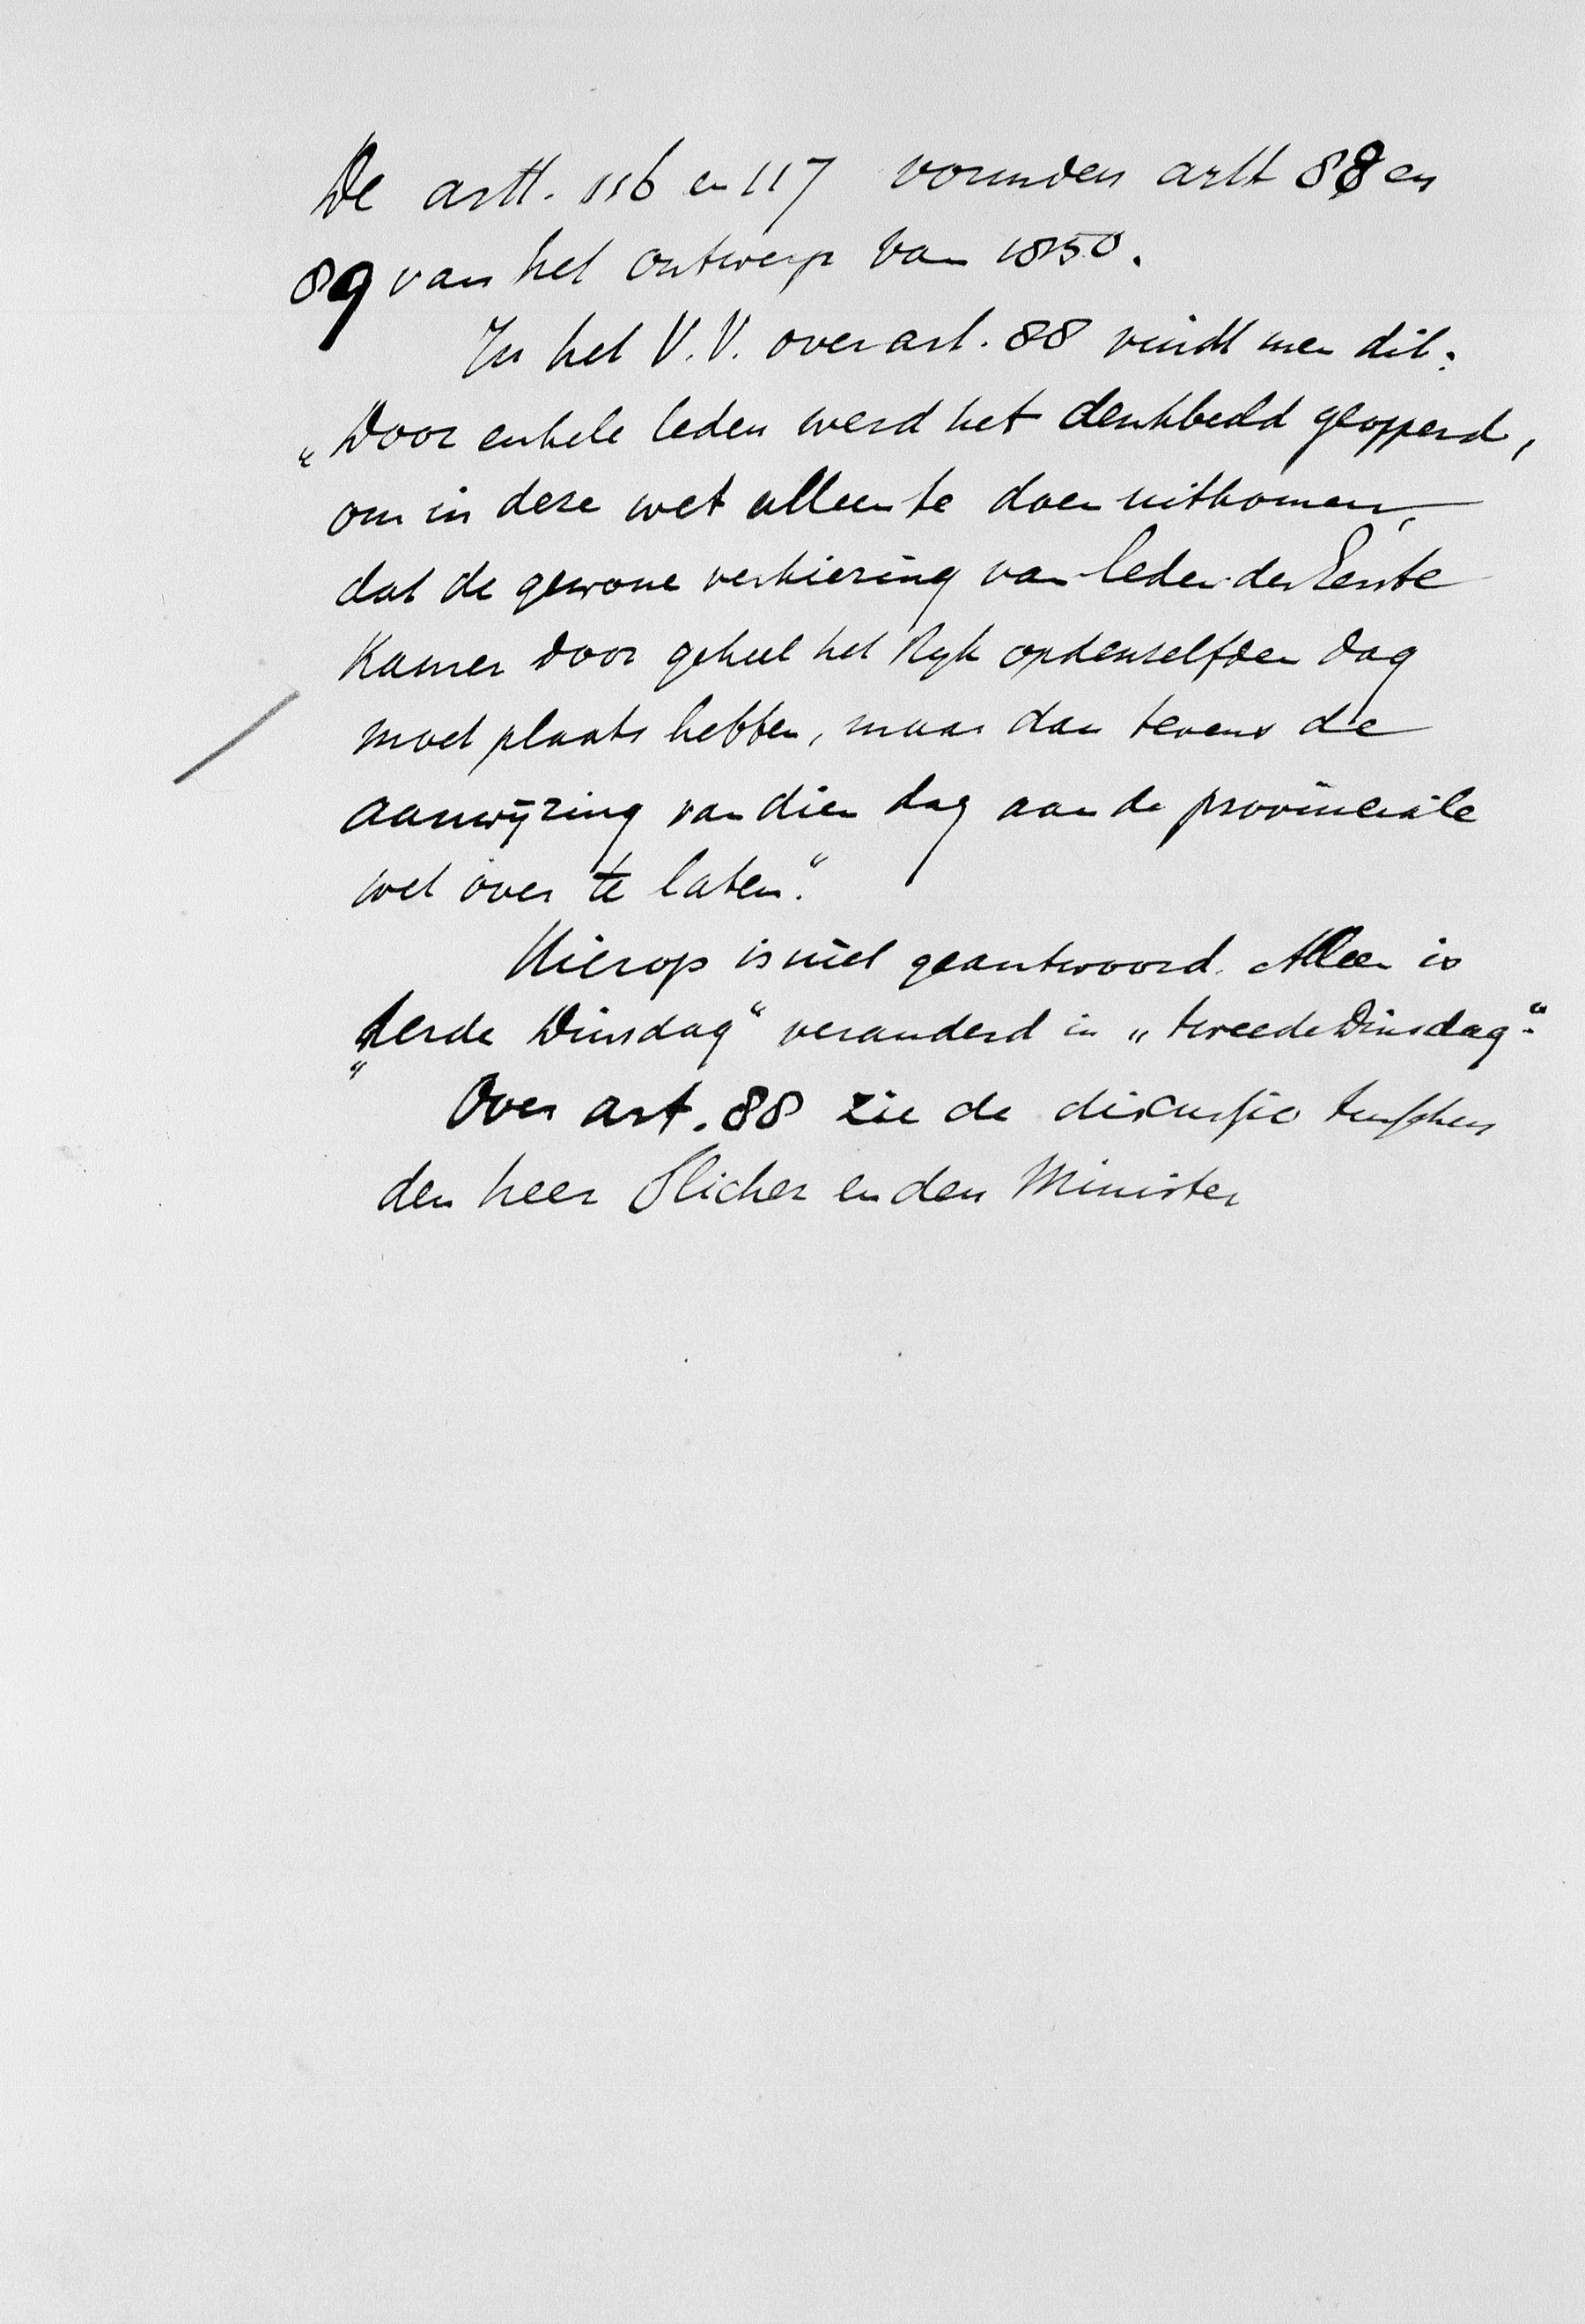 De artt. 116 en 117 vormden artt 88 en
89 van het ontwerp van 1850.
In het V.V. over art. 88 vindt men dit:
„Door enkele leden werd het denkbeeld geopperd,
om in deze wet alleen te doen uitkomen,
dat de gewone verkiezing van leden der Eerste
Kamer door geheel het Rijk op denzelfden dag
moet plaats hebben, maar dan tevens de
aanwijzing van dien dag aan de provinciale
wet over te laten."
Hierop is niet geantwoord. Alleen is
„derde Dinsdag" veranderd in „tweede Dinsdag".
Over art. 88 zie de discussie tusschen
den heer Slicher en den Minister